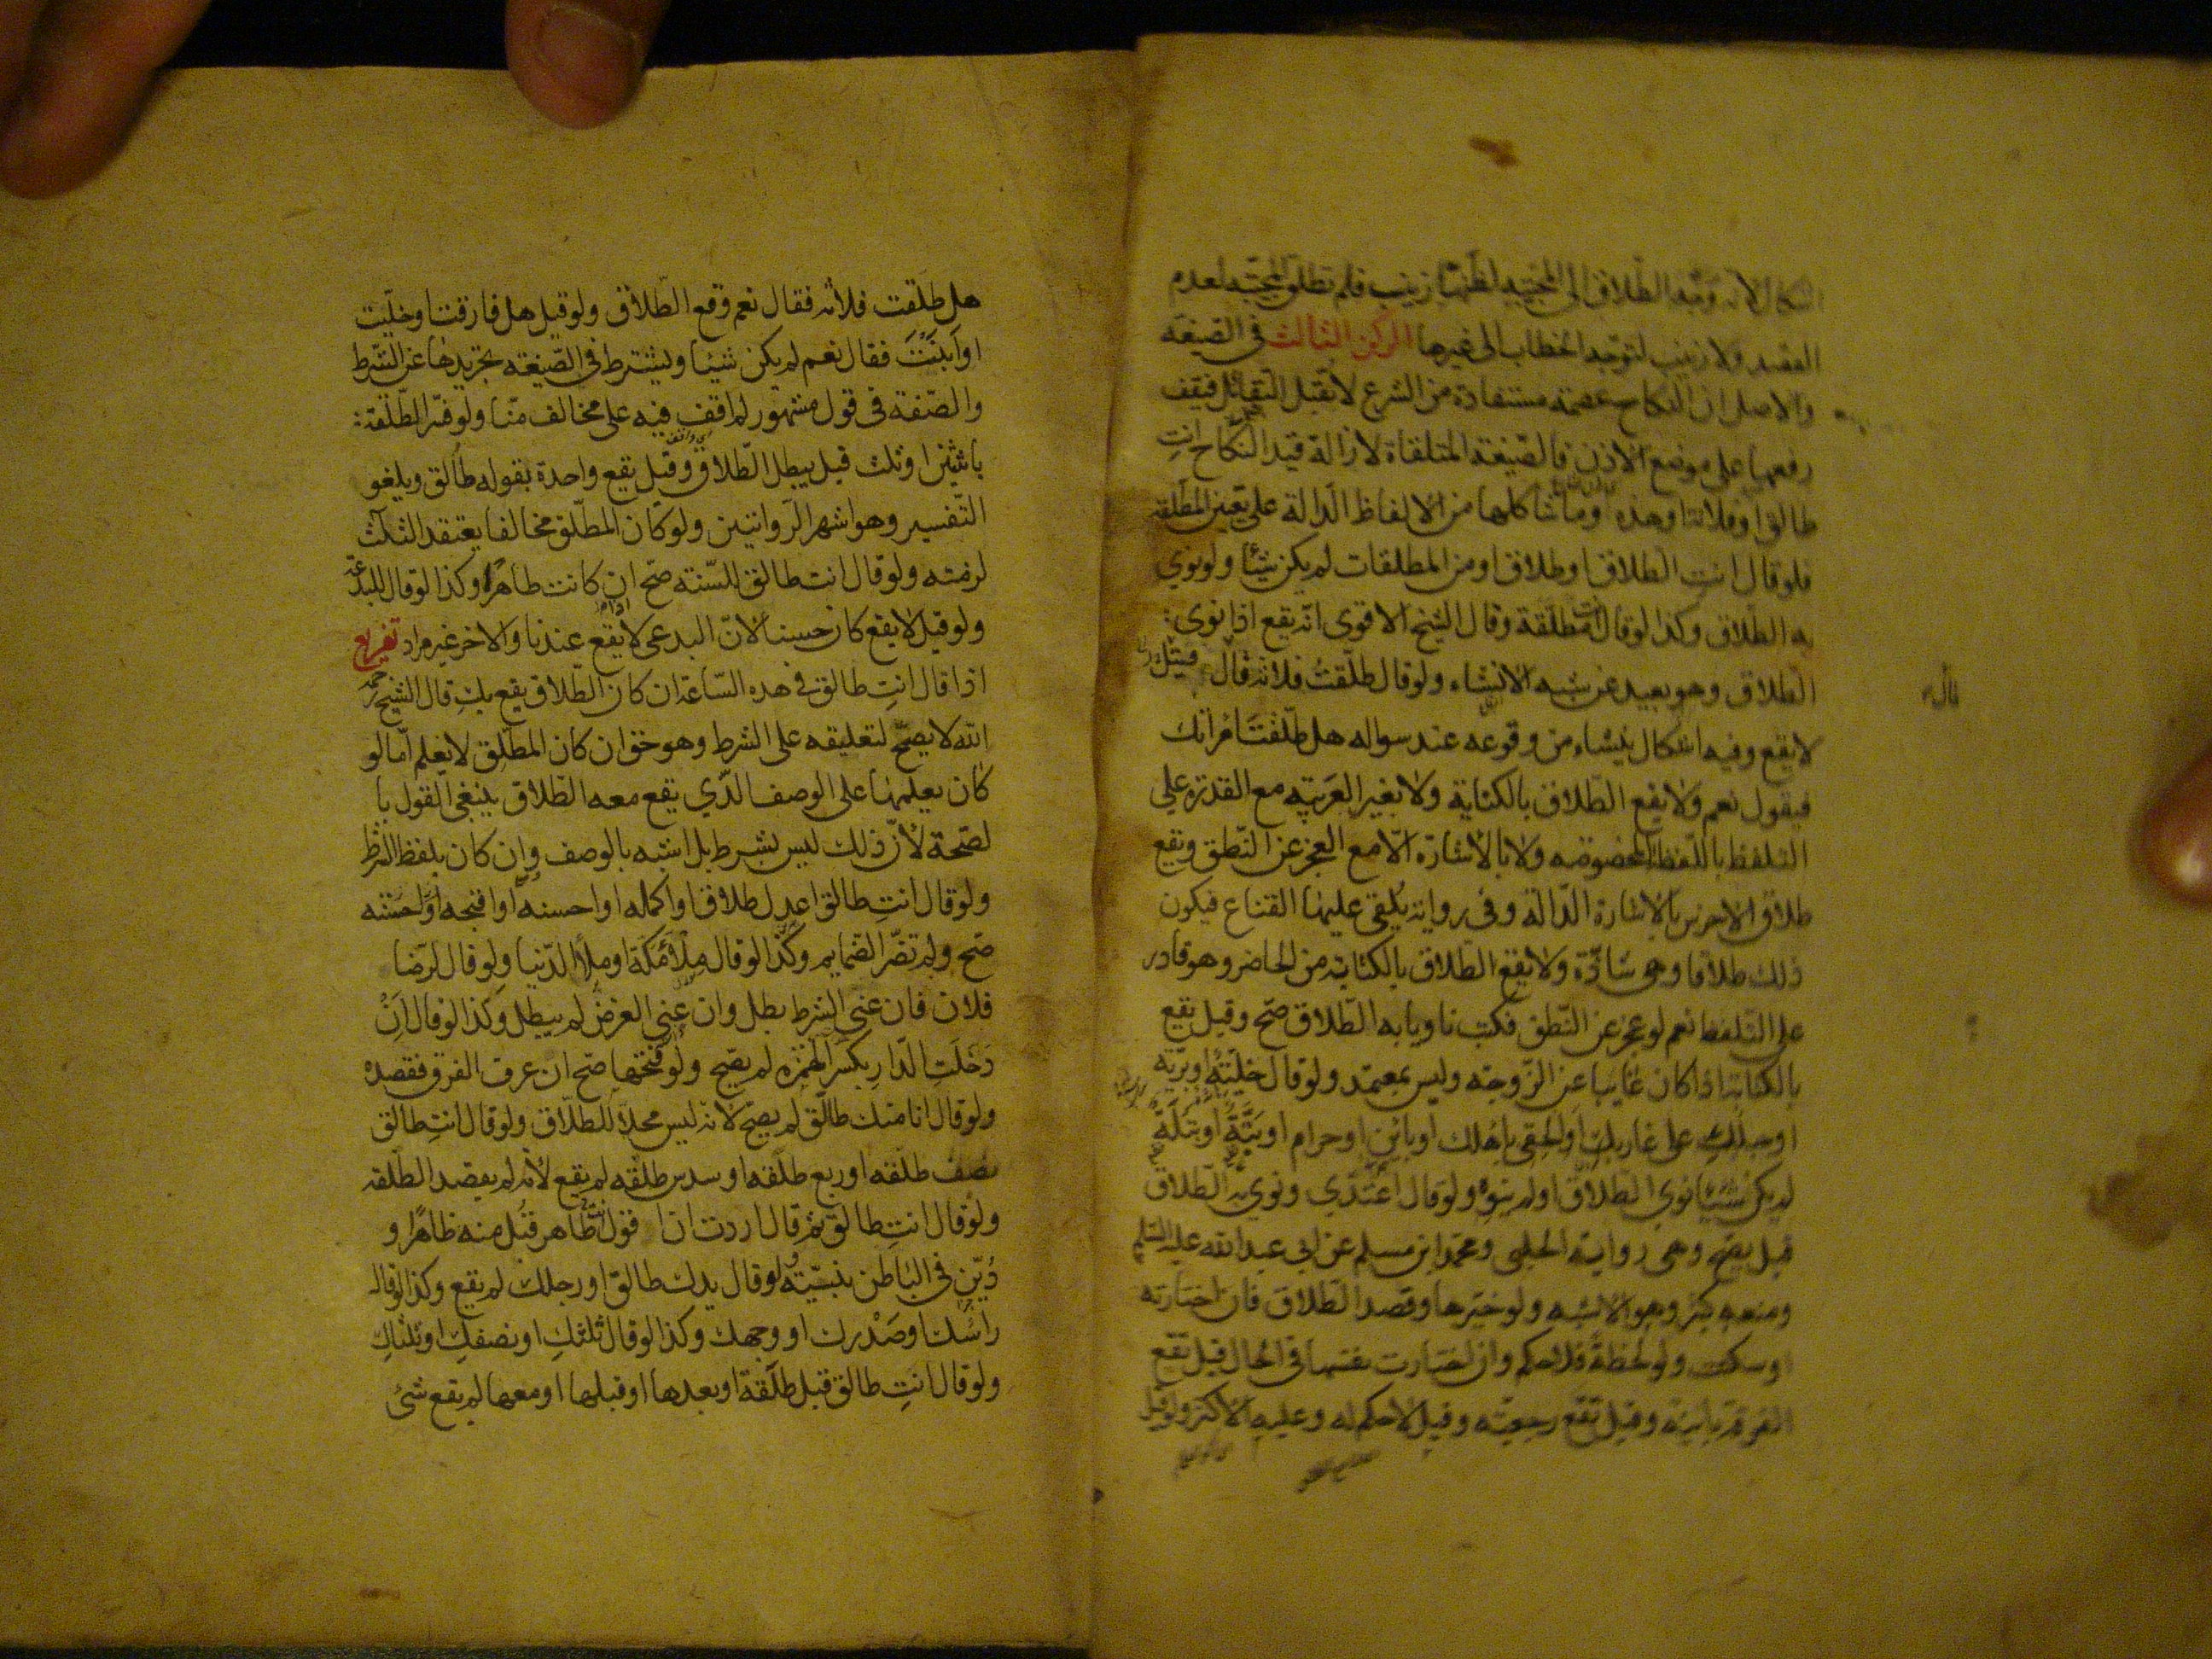 اشكال لانه وجه الطلاق الى المجيبه لظنها زينب فلم تطلق المجيبه لعدم
القصد ولا زينب لتوجه الخطاب الى غيرها الركن الثالث في الصيغه
والاصل ان النكاح عصمة مستفادة من الشرع لا تقبل التقايل فيقف
رفعها على موضع الاذن فالصيغة المتلقاة لازالة قيد النكاح انتِ
طالق او فلانة او هذه وما شاكلها من الالفاظ الدالة على تعيين المطلقة
فلو قال انتِ الطلاق او طلاق او من المطلقات لم يكن شيئا ولو نوي
به الطلاق وكذا لو قال انت مطلقة وقال الشيخ الاقوى انه يقع اذا نوى
الطلاق وهو بعيد عن شبه الانشاء ولو قال طلقتُ فلانة قال
لا يقع وفيه اشكال ينشاء من وقوعه عند سواله هل طلّقتَ امراتك
فيقول نعم ولا يقع الطلاق بالكناية ولا بغير العربيّه مع القدرة على
التلفظ باللفظ المخصوصه ولا بالاشارة الّا مع العجز عن النّطق ويقع
طلاق الاخرس بالاشارة الدالة وفي رواية يُلقى عليها القناع فيكون
ذلك طلاقا وهي شاذّة ولا يقع الطلاق بالكتابة من الحاضر وهو قادر
على التلفظ نعم لو عجز عن النّطق فكتب ناويا به الطّلاق صحّ وقيل يقع
بالكتابة اذا كان غايبا عن الزّوجه وليس بمعتمد ولو قال خليّة او بريّه
او حبلكِ على غاربك او الحقى باهلك او باين او حرام او بتّةٌ او بتلَة
لم يكن شيئا نوي الطلاق او لم ينوه ولو قال اعتدّي ونوي به الطلاق
قيل يصّح وهي رواية الحلبي ومحمد ابن مسلم عن ابي عبد الله عليه السّلم
ومنعه كثير وهو الاشبه ولو خيّرها وقصد الطلاق فان اختارته
او سكتت ولو لحظة فلا حكم وان اختارت نفسها في الحال قيل تقع
الفرقة باينة وقيل تقع رجعيّه وقيل لا حكم له وعليه الاكثر ولو قيل
هل طلّقت فلانه فقال نعم وقع الطّلاق ولو قيل هل فارقت او خلّيت
او اَبنَتَ فقال نعم لم يكن شيئا ويشترط في الصّيغه تجريدها عن الشّرط
والصّفة في قول مشهور لم اقف فيه على مخالف منّا ولو فسّر الطّلقة
باثنتين او ثلث قيل يبطل الطّلاق وقيل يقع واحدة بقوله طالق ويلغو
التّفسير وهو اشهر الرّوايتين ولو كان المطلّق مخالفا يعتقد الثلث
لزمته ولو قال انت طالق للسّنه صحّ ان كانت طاهرًا وكذا لو قال للبدعة
ولو قيل لا يقع كان حسنا لانّ البدعى لا يقع عندنا والاخر غير مراد تفريع
اذا قال انتِ طالق في هذه السّاعة ان كان الطّلاق يقع بكِ قال الشيخ رحمه
الله لا يصحّ لتعليقه على الشرط وهو حق ان كان المطلق لا يعلم امّا لو
كان يعلمها على الوصف الّذي يقع معه الطلاق ينبغي القول با
لصّحة لانّ ذلك ليس بشرط بل اشبه بالوصف وان كان بلفظ الشرط
ولو قال انتِ طالق اعدل طلاق او اكمله او احسنه او اقبحه او احسنه
صّح ولم تضرّ الضمايم وكذا لو قال مِلأ مَكّة او ملأ الدّنيا ولو قال لرضا
فلان فان عني الشرط بطل وان عني الغرض لم يبطل وكذا لو قال اَنْ
دَخَلَتِ الدّار بكسر الهمزه لم يصّح ولو فتحها صحّ ان عرف الفرق فقصده
ولو قال انا منك طالق لم يصحّ لانه ليس محلاّ للطّلاق ولو قال انتِ طالق
نصف طلّقه او ربع طلقه او سدس طلقه لم يقع لانه لم يقصد الطّلقه
ولو قال انتِ طالق ثم قال اردت ان اقول طاهر قُبل منه ظاهرًا و
دُيّن في الباطن بنيّته ولو قال يدك طالق او رجلك لم يقع وكذا لو قال
راسُكَ او صَدْرك او وجهك وكذا لو قال ثلثكِ او نصفكِ او ثلثاكِ
ولو قال انتِ طالق قبل طلقة او بعدها او قبلها او معها لم يقع شئ